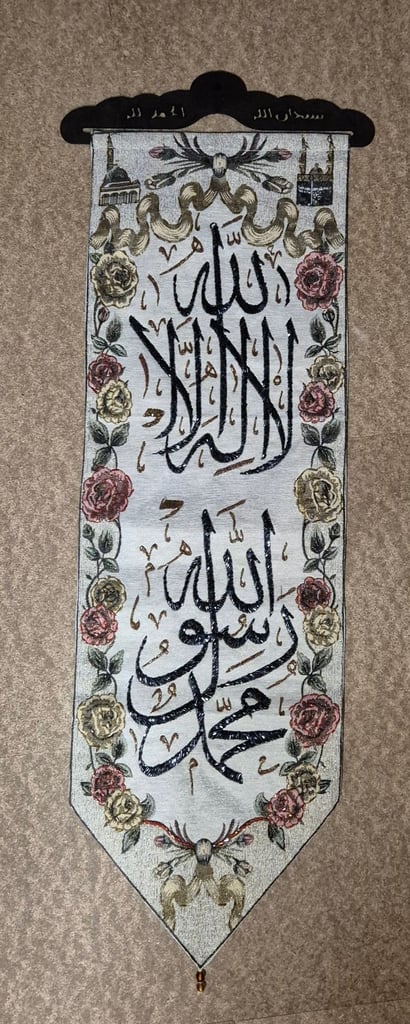 سبحان الله الحمد لله
لا اله الا الله
محمد رسول الله